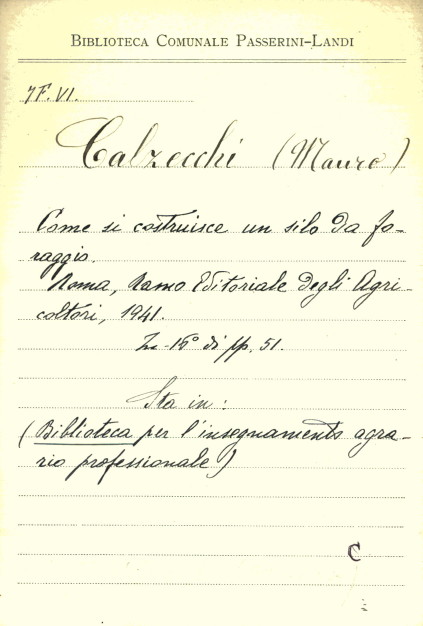 BIBLIOTECA COMUNALE PASSERINI-LANDI
7F.VI.
Calzecchi (Mauro)
Come si costruisce un silo da fo-
raggio.
Roma, Ramo Editoriale degli Agri-
coltori, 1941.
in-16° di pp. 51.
Sta in:
(Biblioteca per l'insegnamento agra-
rio professionale)
C